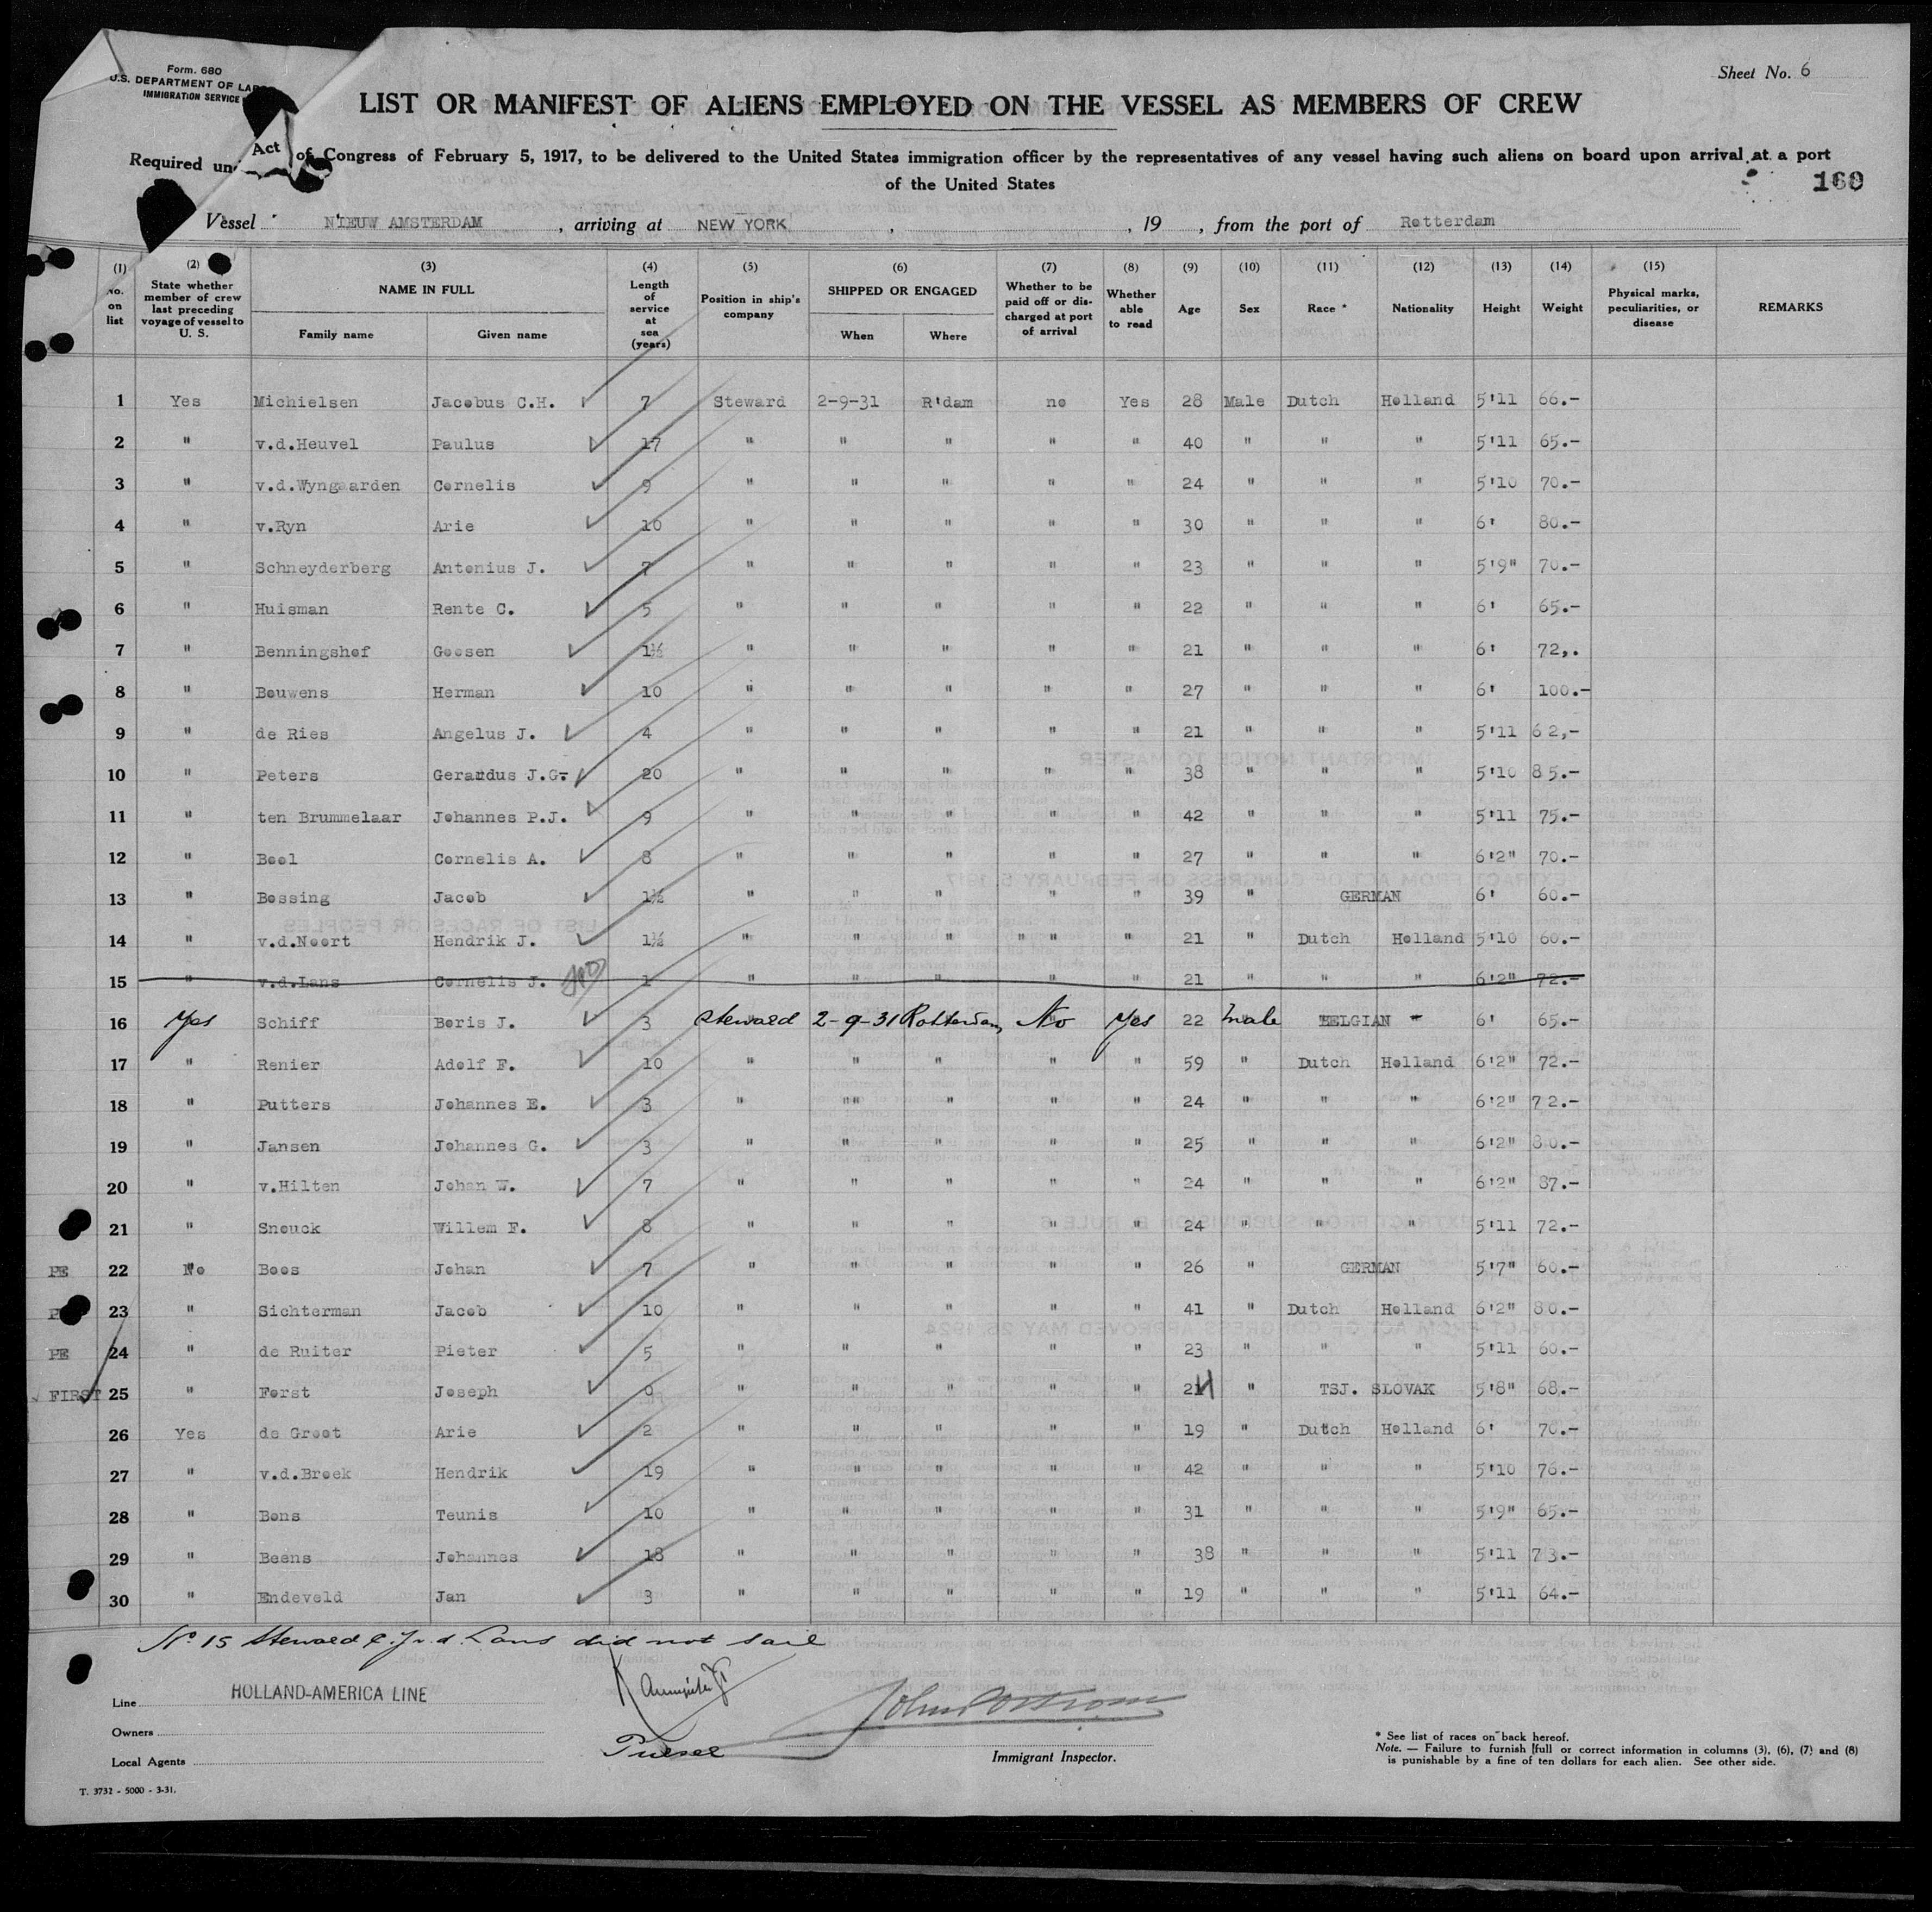 Form. 680
U.S. DEPARTMENT OF LABOR
IMMIGRATION SERVICE
Sheet No. 6
LIST OR MANIFEST OF ALIENS EMPLOYED ON THE VESSEL AS MEMBERS OF CREW
Required un Act of Congress of February 5, 1917, to be delivered to the United States immigration officer by the representatives of any vessel having such aliens on board upon arrival at a port
of the United States
160
Vessel NIEUW AMSTERDAM, arriving at NEW YORK, , 19 , from the port of Rotterdam
(1) No. on list (2) State whether member of crew last preceding voyage of vessel to U. S. (3) NAME IN FULL Family name Given name (4) Length of service at sea (years) (5) Position in ship's company (6) SHIPPED OR ENGAGED When Where (7) Whether to be paid off or discharged at port of arrival (8) Whether able to read (9) Age (10) Sex (11) Race * (12) Nationality (13) Height (14) Weight (15) Physical marks, peculiarities, or disease REMARKS
1 Yes Michielsen Jacobus C.H. 7 Steward 2-9-31 R'dam no Yes 28 Male Dutch Holland 5'11 66.-
2 " v.d.Heuvel Paulus 17 " " " " " 40 " " " 5'11 65.-
3 " v.d.Wyngaarden Cornelis 9 " " " " " 24 " " " 5'10 70.-
4 " v.Ryn Arie 10 " " " " " 30 " " " 6' 80.-
5 " Schneyderberg Antonius J. 7 " " " " " 23 " " " 5'9" 70.-
6 " Huisman Rente C. 5 " " " " " 22 " " " 6' 65.-
7 " Benningshof Goosen 1½ " " " " " 21 " " " 6' 72,.
8 " Bouwens Herman 10 " " " " " 27 " " " 6' 100.-
9 " de Ries Angelus J. 4 " " " " " 21 " " " 5'11 62,-
10 " Peters Gerardus J.G. 20 " " " " " 38 " " " 5'10 85.-
11 " ten Brummelaar Johannes P.J. 9 " " " " " 42 " " " 5'11 75.-
12 " Bool Cornelis A. 8 " " " " " 27 " " " 6'2" 70.-
13 " Bossing Jacob 1½ " " " " " 39 " GERMAN 6' 60.-
14 " v.d.Noort Hendrik J. 1½ " " " " " " 21 " Dutch Holland 5'10 60.-
15 " v.d.Lans Cornelis J. 1 " " " " " 21 " " " 6'2" 72.-
16 Yes Schiff Boris J. 3 Steward 2-9-31 Rotterdam No Yes 22 male BELGIAN " 6' 65.-
17 " Renier Adolf F. 10 " " " " " 59 " Dutch Holland 6'2" 72.-
18 " Putters Johannes E. 3 " "" " " " 24 " " " 6'2" 72.-
19 " Jansen Johannes G. 3 " " " " " 25 " " " 6'2" 80.-
20 " v.Hilten Johan W. 7 " " " " " 24 " " " 6'2" 87.-
21 " Snouck Willem F. 8 " " " " " 24 " " " 5'11 72.-
PE 22 No Boos Johan 7 " " " " " 26 " GERMAN 5'7" 60.-
23 " Sichterman Jacob 10 " " " " " 41 " Dutch Holland 6'2" 80.-
PE 24 " de Ruiter Pieter 5 " " " " " 23 " " " 5'11 60.-
FIRST 25 " Forst Joseph 0 " " " " " 24 " TSJ. SLOVAK 5'8" 68.-
26 Yes de Groot Arie 2 " " " " " 19 " Dutch Holland 6' 70.-
27 " v.d.Broek Hendrik 19 " " " " " 42 " " " 5'10 76.-
28 " Bons Teunis 10 " " " " " 31 " " " 5'9" 65.-
29 " Beens Johannes 18 " " " " " 38 " " " 5'11 73.-
30 " Endeveld Jan 3 " " " " " 19 " " " 5'11 64.-
No 15 Steward C.J. v.d. Lans did not sail
Line HOLLAND-AMERICA LINE
Owners
Local Agents
Purser
Immigrant Inspector.
* See list of races on back hereof.
Note. — Failure to furnish full or correct information in columns (3), (6), (7) and (8)
is punishable by a fine of ten dollars for each alien. See other side.
T. 3732 - 5000 - 3-31.